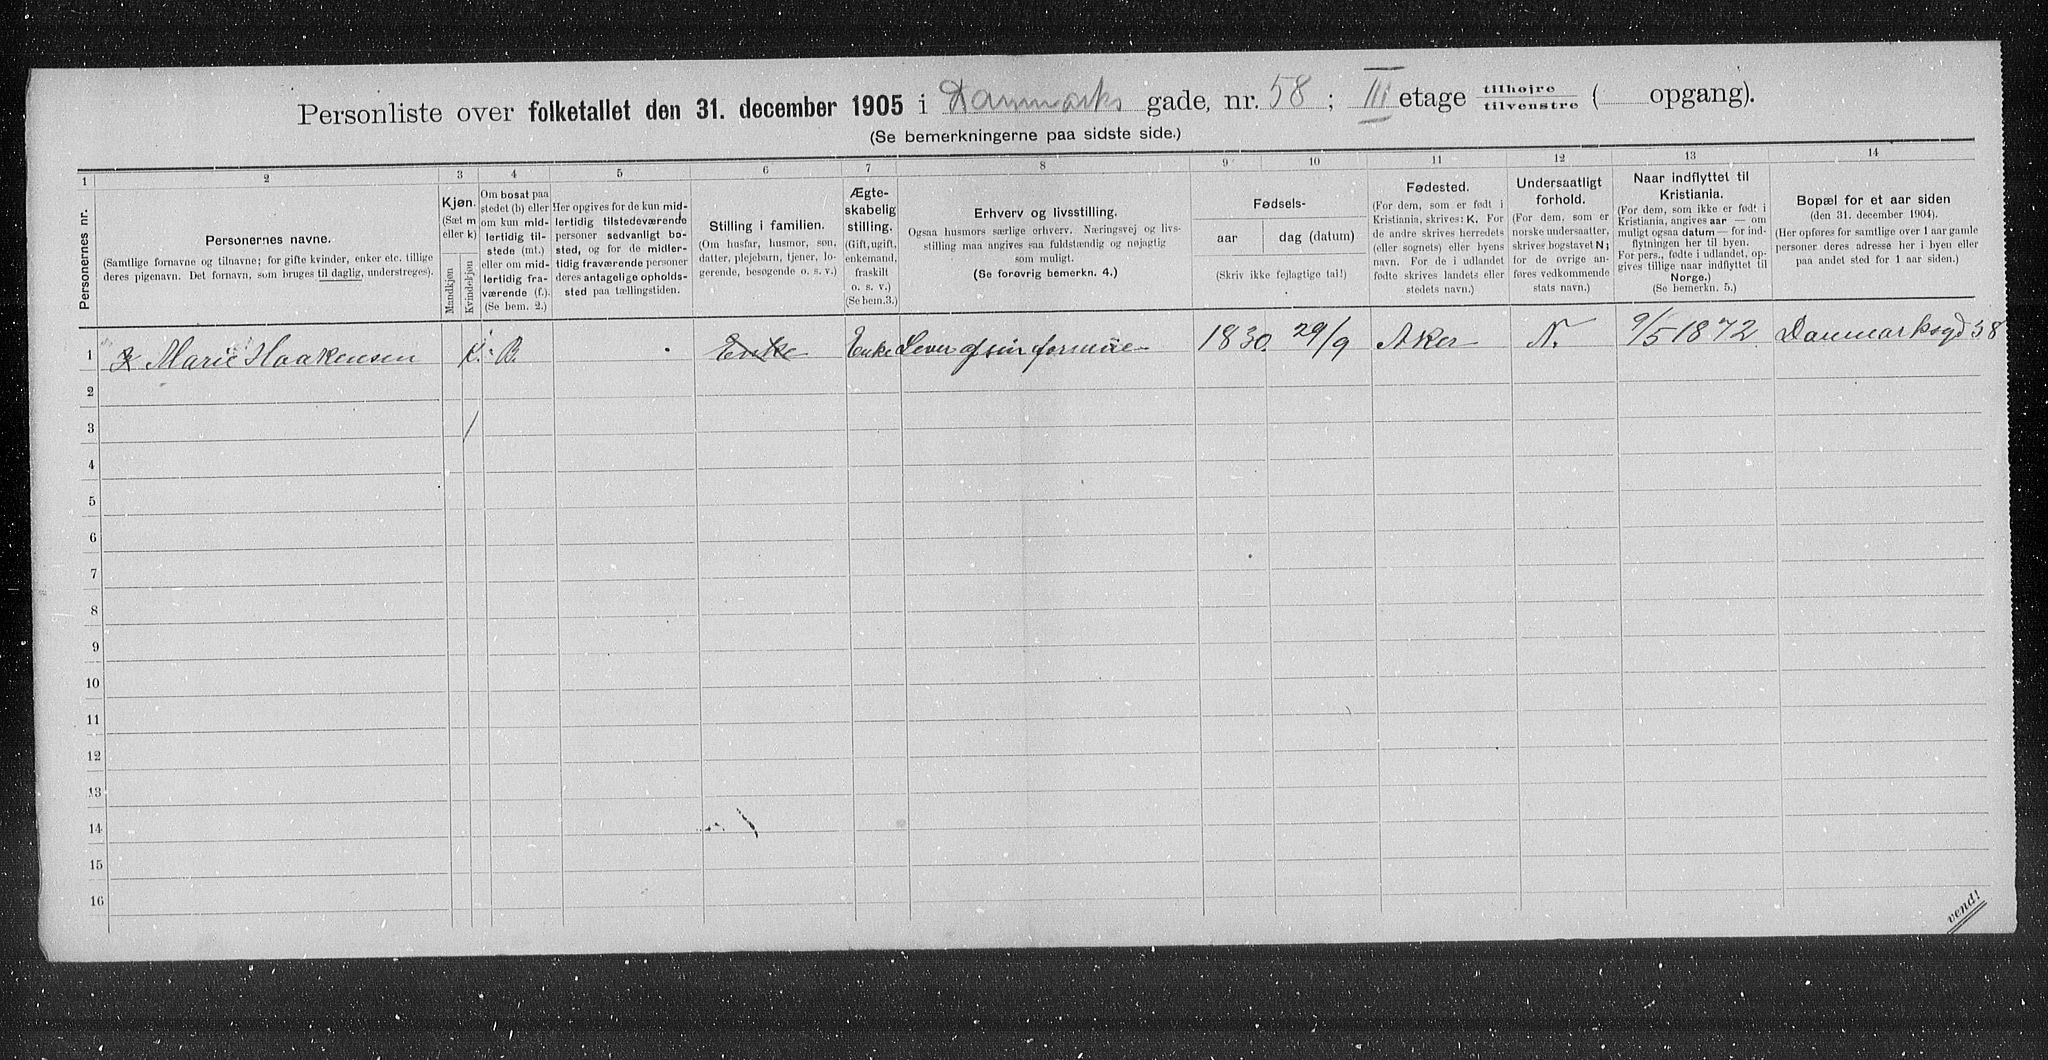 Personliste over folketallet den 31. december 1905 i Danmarks gade, nr. 58 ; III etage tilhøjre tilvenstre ( opgang).
(Se bemerkningerne paa sidste side.)
1 2 3 4 5 6 7 8 9 10 11 12 13 14
Personernes nr.
Personernes navne.
(Samtlige fornavne og tilnavne; for gifte kvinder, enker etc. tillige
deres pigenavn. Det fornavn, som bruges til daglig, understreges).
Kjøn.
(Sæt m
eller k)
Mandkjøn
Kvindekjøn
Om bosat paa
stedet (b) eller
om kun mid-
lertidig til-
stede (mt.)
eller om mid-
lertidig fra-
værende (f.).
(Se bem. 2.)
Her opgives for de kun mid-
lertidig tilstedeværende
personer sedvanligt bo-
sted, og for de midler-
tidig fraværende personer
deres antagelige opholds-
sted paa tællingstiden.
Stilling i familien.
(Om husfar, husmor, søn,
datter, plejebarn, tjener, lo-
gerende, besøgende o. s. v.)
Ægte-
skabelig
stilling.
(Gift, ugift,
enkemand,
fraskilt
o. s. v.)
(Se bem.3.)
Erhverv og livsstilling.
Ogsaa husmors særlige erhverv. Næringsvej og livs-
stilling maa angives saa fuldstændig og nøjagtig
som muligt.
(Se forøvrig bemerkn. 4.)
Fødsels-
aar
dag (datum)
(Skriv ikke fejlagtige tal!)
Fødested.
(For dem, som er født i
Kristiania, skrives: K. For
de andre skrives herredets
(eller sognets) eller byens
navn. For de i udlandet
fødte skrives landets eller
stedets navn.)
Undersaatligt
forhold.
(For dem, som er
norske undersaatter,
skrives bogstavet N;
for de øvrige an-
føres vedkommende
stats navn.)
Naar indflyttet til
Kristiania.
(For dem, som ikke er født i
Kristiania, angives aar — om
muligt ogsaa datum — for ind-
flytningen her til byen.
For pers., fødte i udlandet, op-
gives tillige naar indflyttet til
Norge.)
(Se bemerkn. 5.)
Bopæl for et aar siden
(den 31. december 1904).
(Her opføres for samtlige over 1 aar gamle
personer deres adresse her i byen eller
paa andet sted for 1 aar siden.)
1 Marie Haakensen K. B. Enke Enke Lever af sin formue 1830. 29/9 Aker N. 9/5 1872 Danmarksgd 58
2
3 /
4
5
6
7
8
9
10
11
12
13
14
15
16
vend!